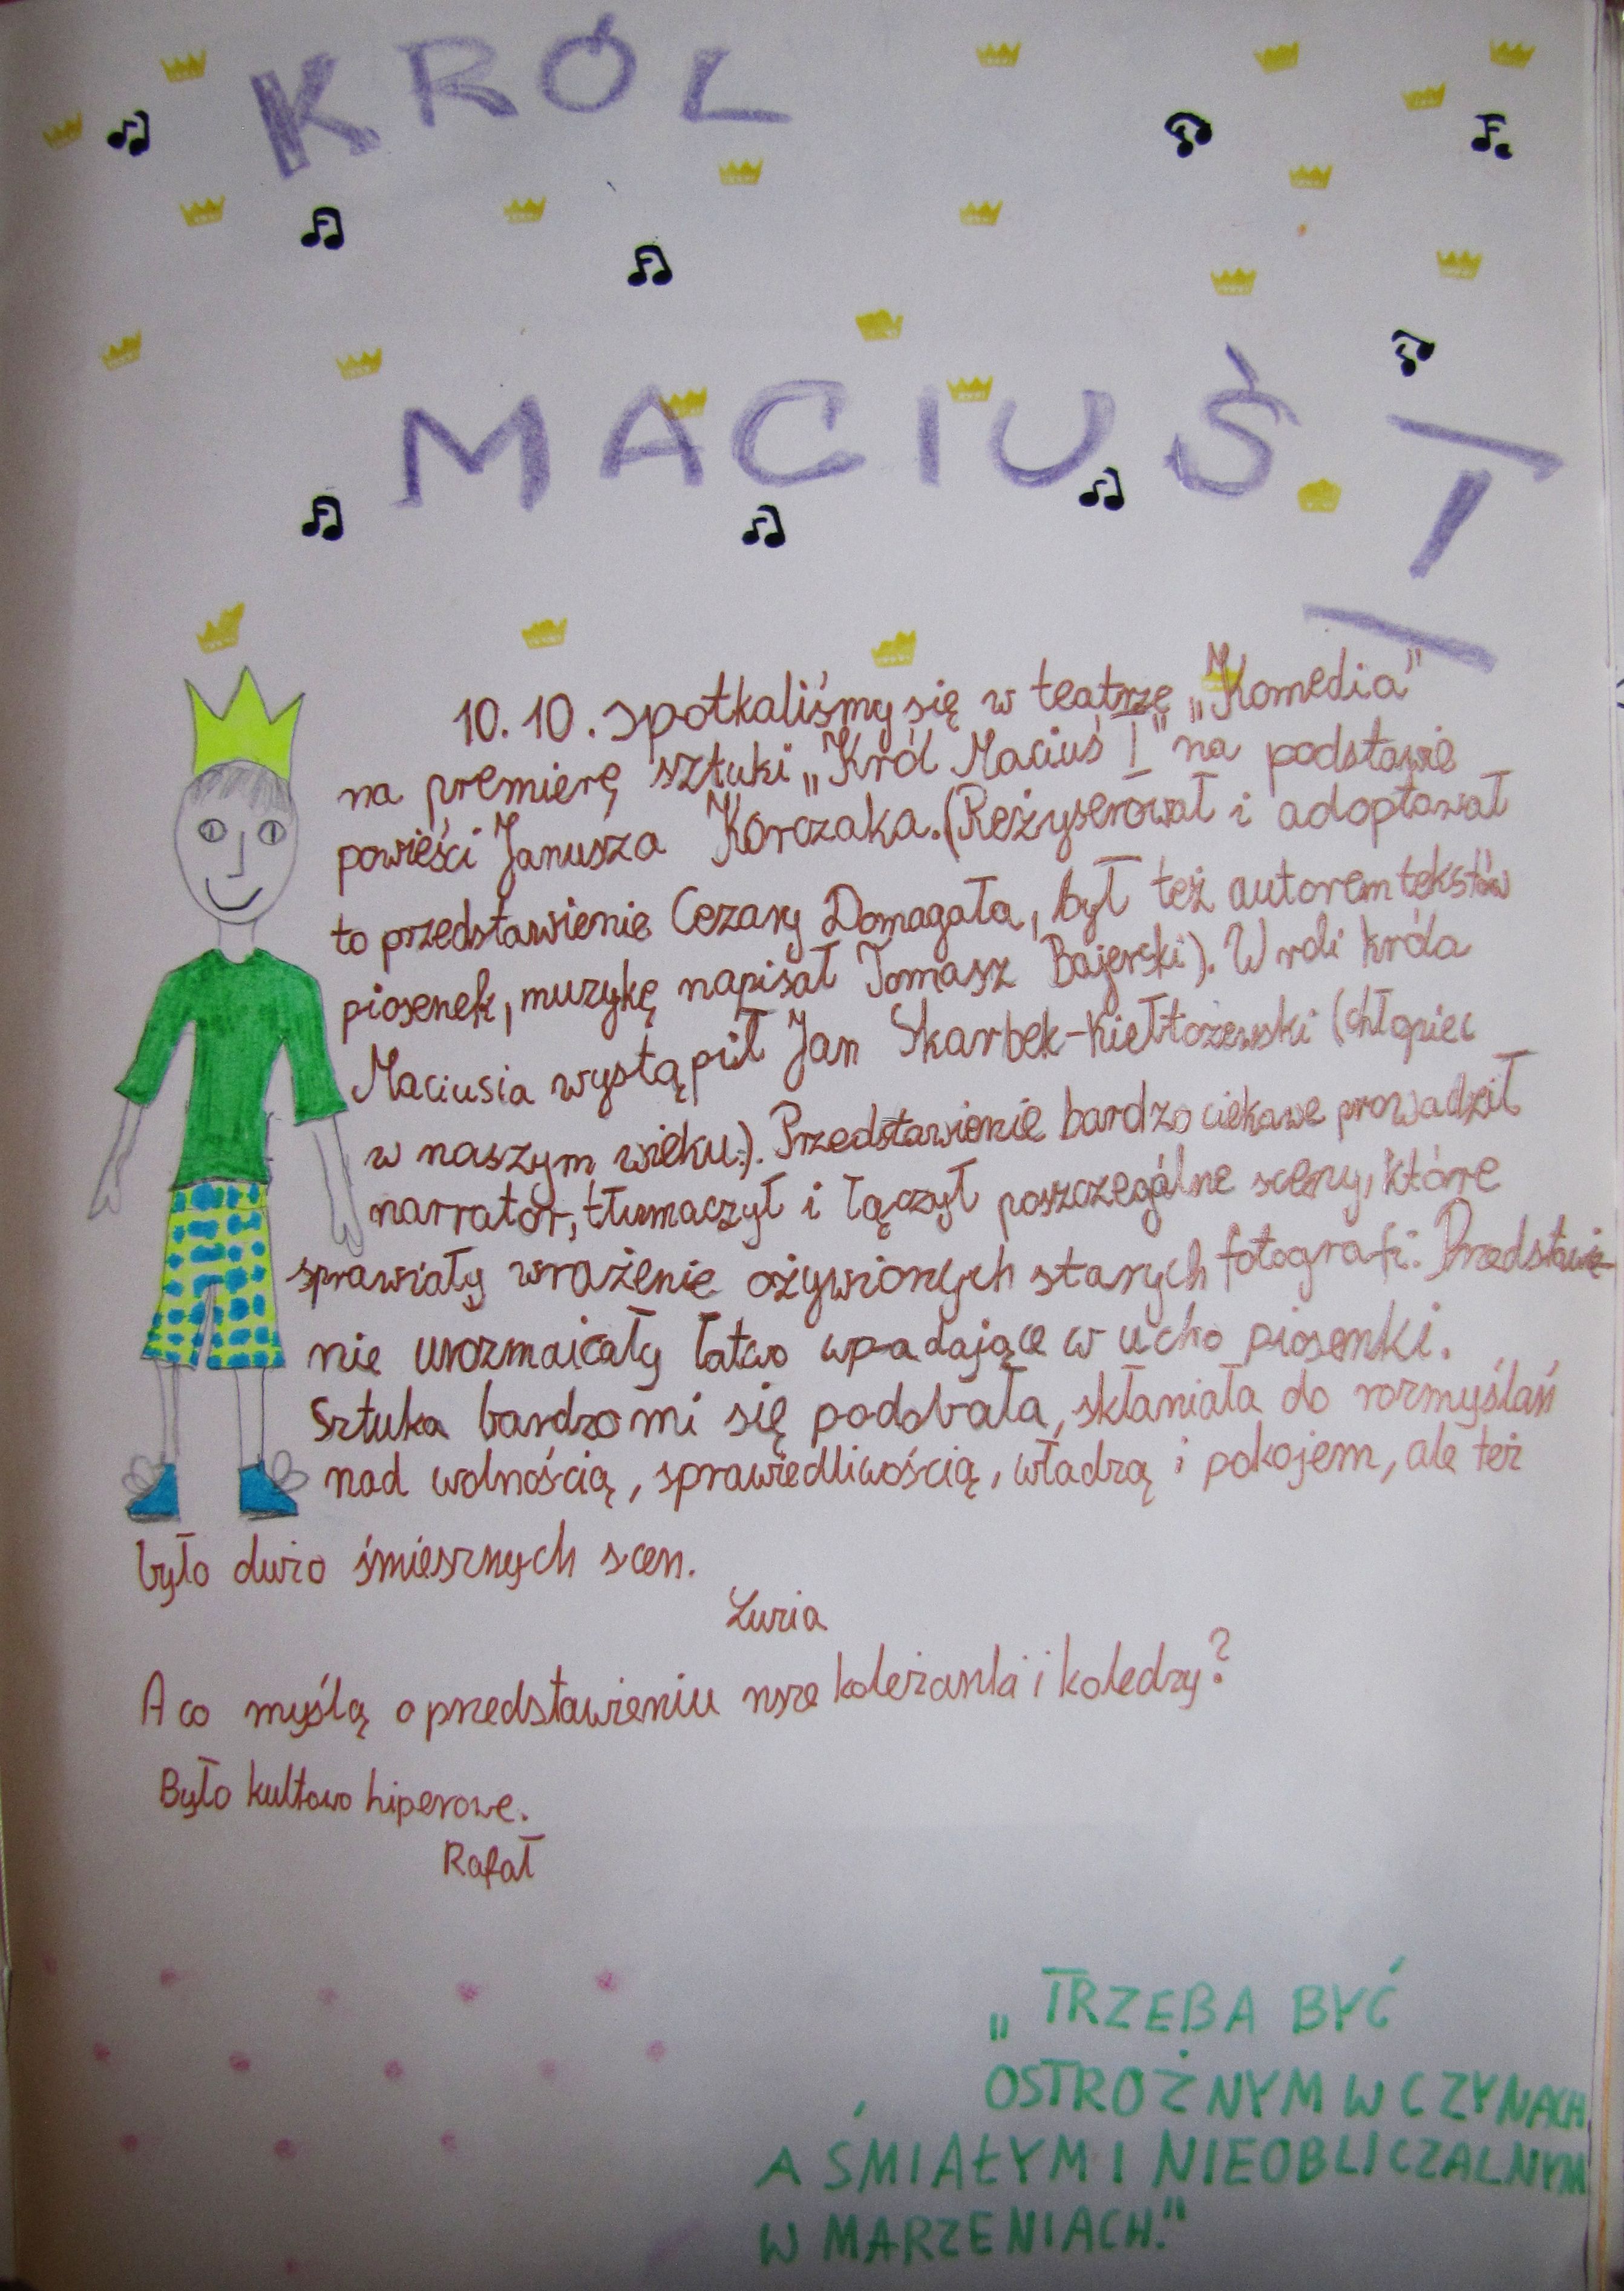 KRÓL
MACIUŚ I
10.10. spotkaliśmy się w teatrze „Komedia"
na premierę sztuki „Król Maciuś I" na podstawie
powieści Janusza Korczaka. (Reżyserował i adoptował
to przedstawienie Cezary Domagała, był też autorem tekstów
piosenek, muzykę napisał Tomasz Bajerski). W roli króla
Maciusia wystąpił Jan Skarbek-Kiełtozewski (chłopiec
w naszym wieku:). Przedstawienie bardzo ciekawe prowadził
narrator, tłumaczył i łączył poszczególne sceny, które
sprawiały wrażenie ożywionych starych fotografi. Przedstawie-
nie urozmaicały łatwo wpadające w ucho piosenki.
Sztuka bardzo mi się podobała, skłaniała do rozmyślań
nad wolnością, sprawiedliwością, władzą i pokojem, ale też
było dużo śmiesznych scen.
Luzia
A co myślą o przedstawieniu nsze koleżanki i koledzy?
Było kultowo hiperowe.
Rafał
„TRZEBA BYĆ
OSTROŻNYM W CZYNACH
A ŚMIAŁYM I NIEOBLICZALNYM
W MARZENIACH."